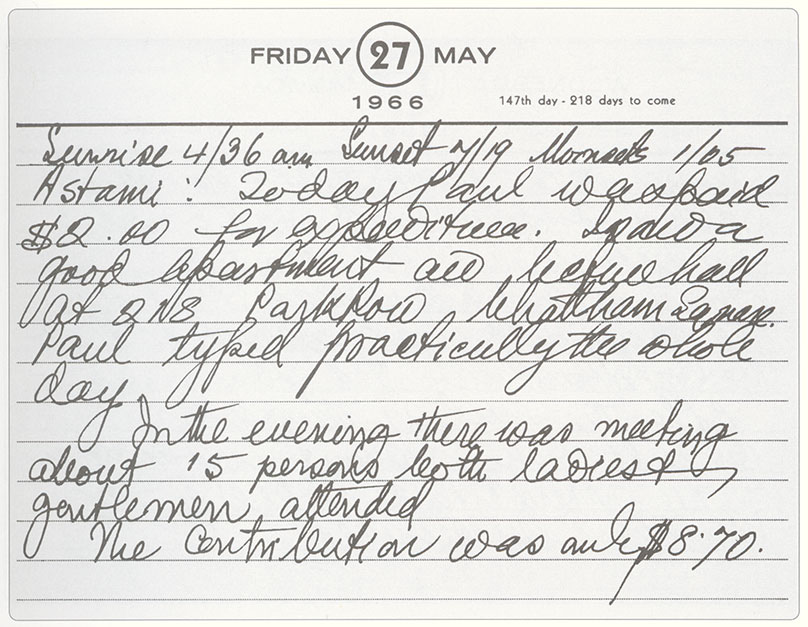 FRIDAY 27 MAY
1966
147th day - 218 days to come
Sunrise 4/36 am Sunset 7/19 Moonsets 1/05
Astami: Today Paul was paid
$2.00 for expenditure. I saw a
good apartment and lecture hall
at 218 Park Row Chattham Square.
Paul typed practically the whole
day.
In the evening there was meeting
about 15 persons both ladies &
gentlemen attended
The contribution was only $8.70.